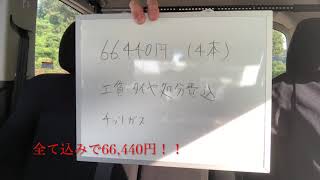 66.440円 (4本)
工賃 タイヤ処分費込
チッソガス
全て込みで66,440円！！